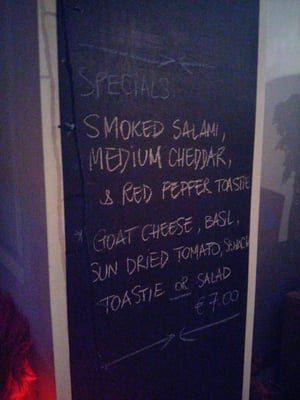 SPECIALS
SMOKED SALAMI,
MEDIUM CHEDDAR,
& RED PEPPER TOASTIE
GOAT CHEESE, BASIL,
SUN DRIED TOMATO,
TOASTIE OR SALAD
€7.00